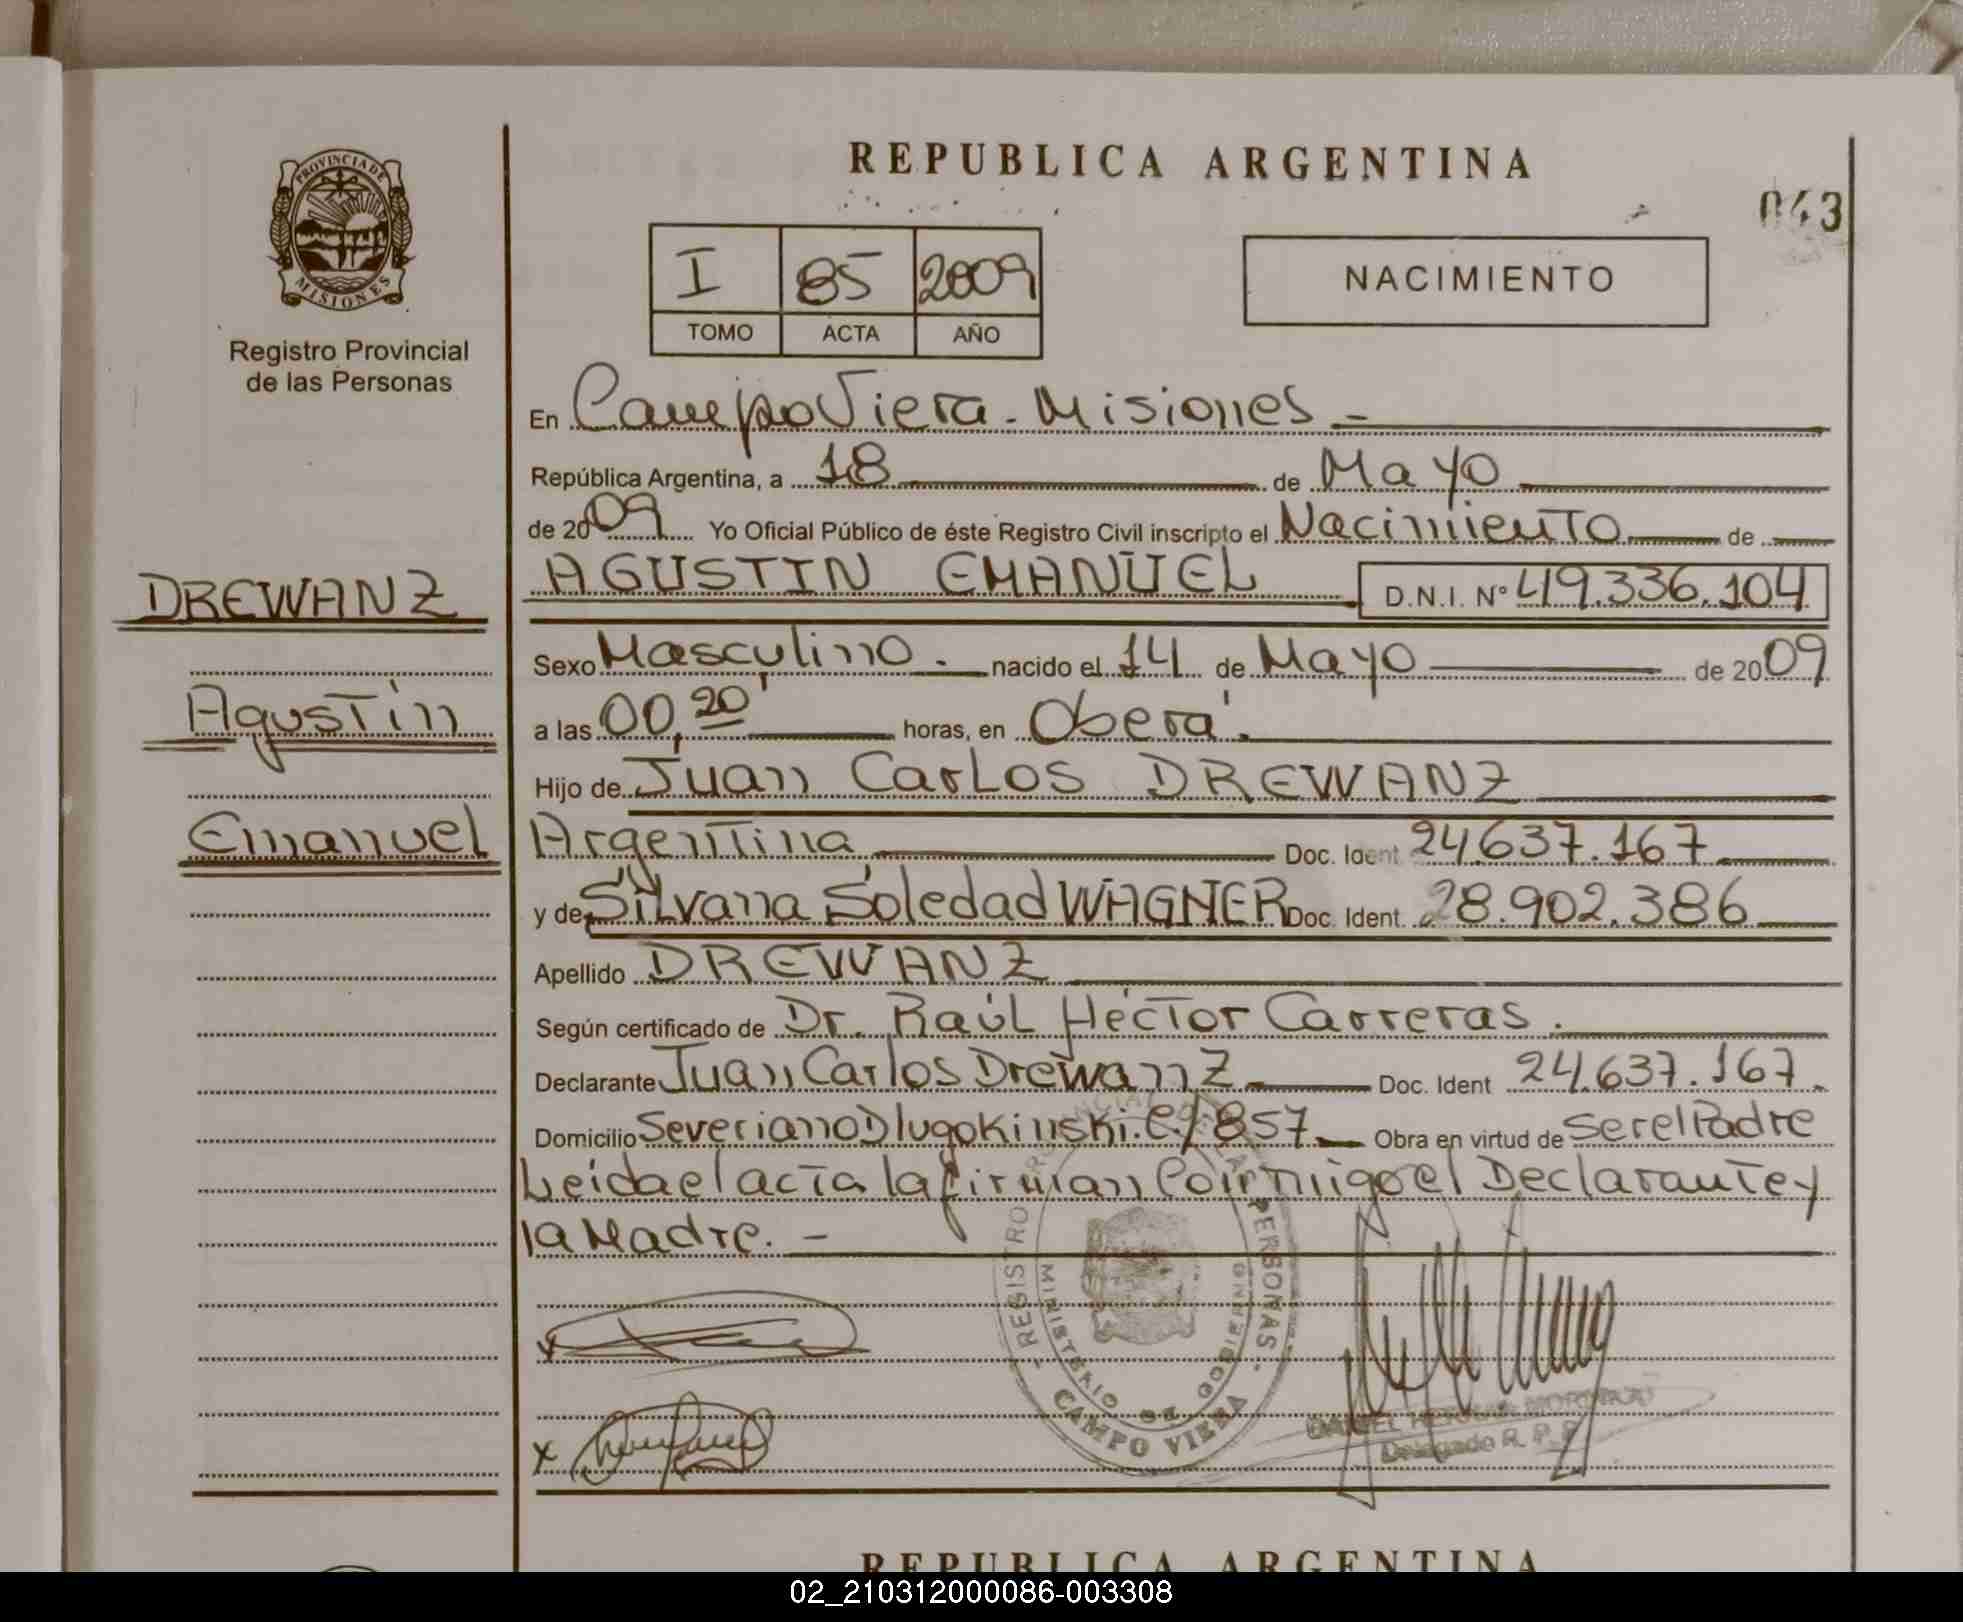 REPUBLICA ARGENTINA
043
PROVINCIA DE
MISIONES
Registro Provincial
de las Personas
I 85 2009
TOMO ACTA AÑO
NACIMIENTO
En Campo Viera - Misiones -
República Argentina, a 18 de Mayo
de 2009 Yo Oficial Público de éste Registro Civil inscripto el Nacimiento de
AGUSTIN EMANUEL D.N.I. N° 49.336.104
DREWANZ
Agustin
Emanuel
Sexo Masculino. nacido el 14 de Mayo de 2009
a las 00,20' horas, en Oberá.
Hijo de Juan Carlos DREWANZ
Argentina Doc. Ident 24.637.167
y de Silvana Soledad WAGNER Doc. Ident. 28.902.386
Apellido DREWANZ
Según certificado de Dr. Raúl Héctor Carreras.
Declarante Juan Carlos Drewanz Doc. Ident 24.637.167.
Domicilio Severiano Dlugokinski. C/857 Obra en virtud de Ser el Padre
Leida el acta la firman Con migo el Declarante y
la Madre. -
REGISTRO PROVINCIAL DE LAS PERSONAS
MINISTERIO DE GOBIERNO
CAMPO VIERA
x
x
DANIEL
Delegado R. P. P.
REPUBLICA ARGENTINA
02_210312000086-003308